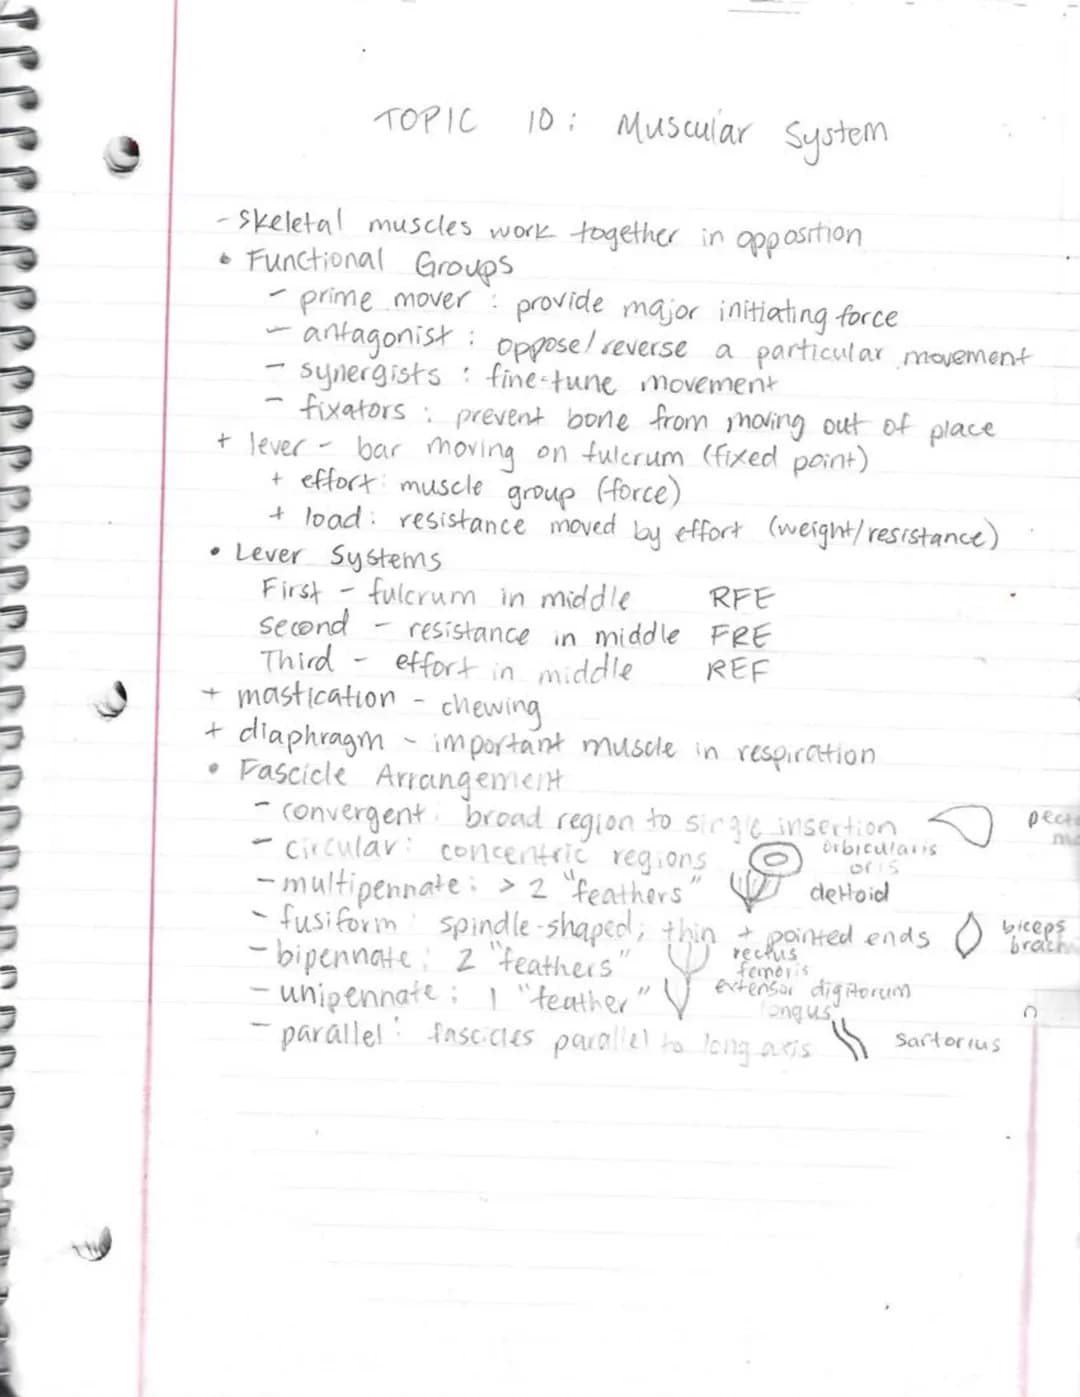 TOPIC 10: Muscular System
- Skeletal muscles work together in opposition
• Functional Groups
- prime mover : provide major initiating force
- antagonist : oppose/reverse a particular movement
- synergists : fine-tune movement
- fixators : prevent bone from moving out of place
+ lever - bar moving on fulcrum (fixed point)
+ effort: muscle group (force)
+ load: resistance moved by effort (weight/resistance)
• Lever Systems
First - fulcrum in middle RFE
Second - resistance in middle FRE
Third - effort in middle REF
+ mastication - chewing
+ diaphragm - important muscle in respiration
• Fascicle Arrangement
- convergent: broad region to single insertion
- circular: concentric regions orbicularis oris
- multipennate: > 2 "feathers" deltoid
- fusiform: spindle-shaped; thin + pointed ends biceps
- bipennate: 2 "feathers" rectus femoris
- unipennate: 1 "feather" extensor digitorum longus
- parallel: fascicles parallel to long axis sartorius